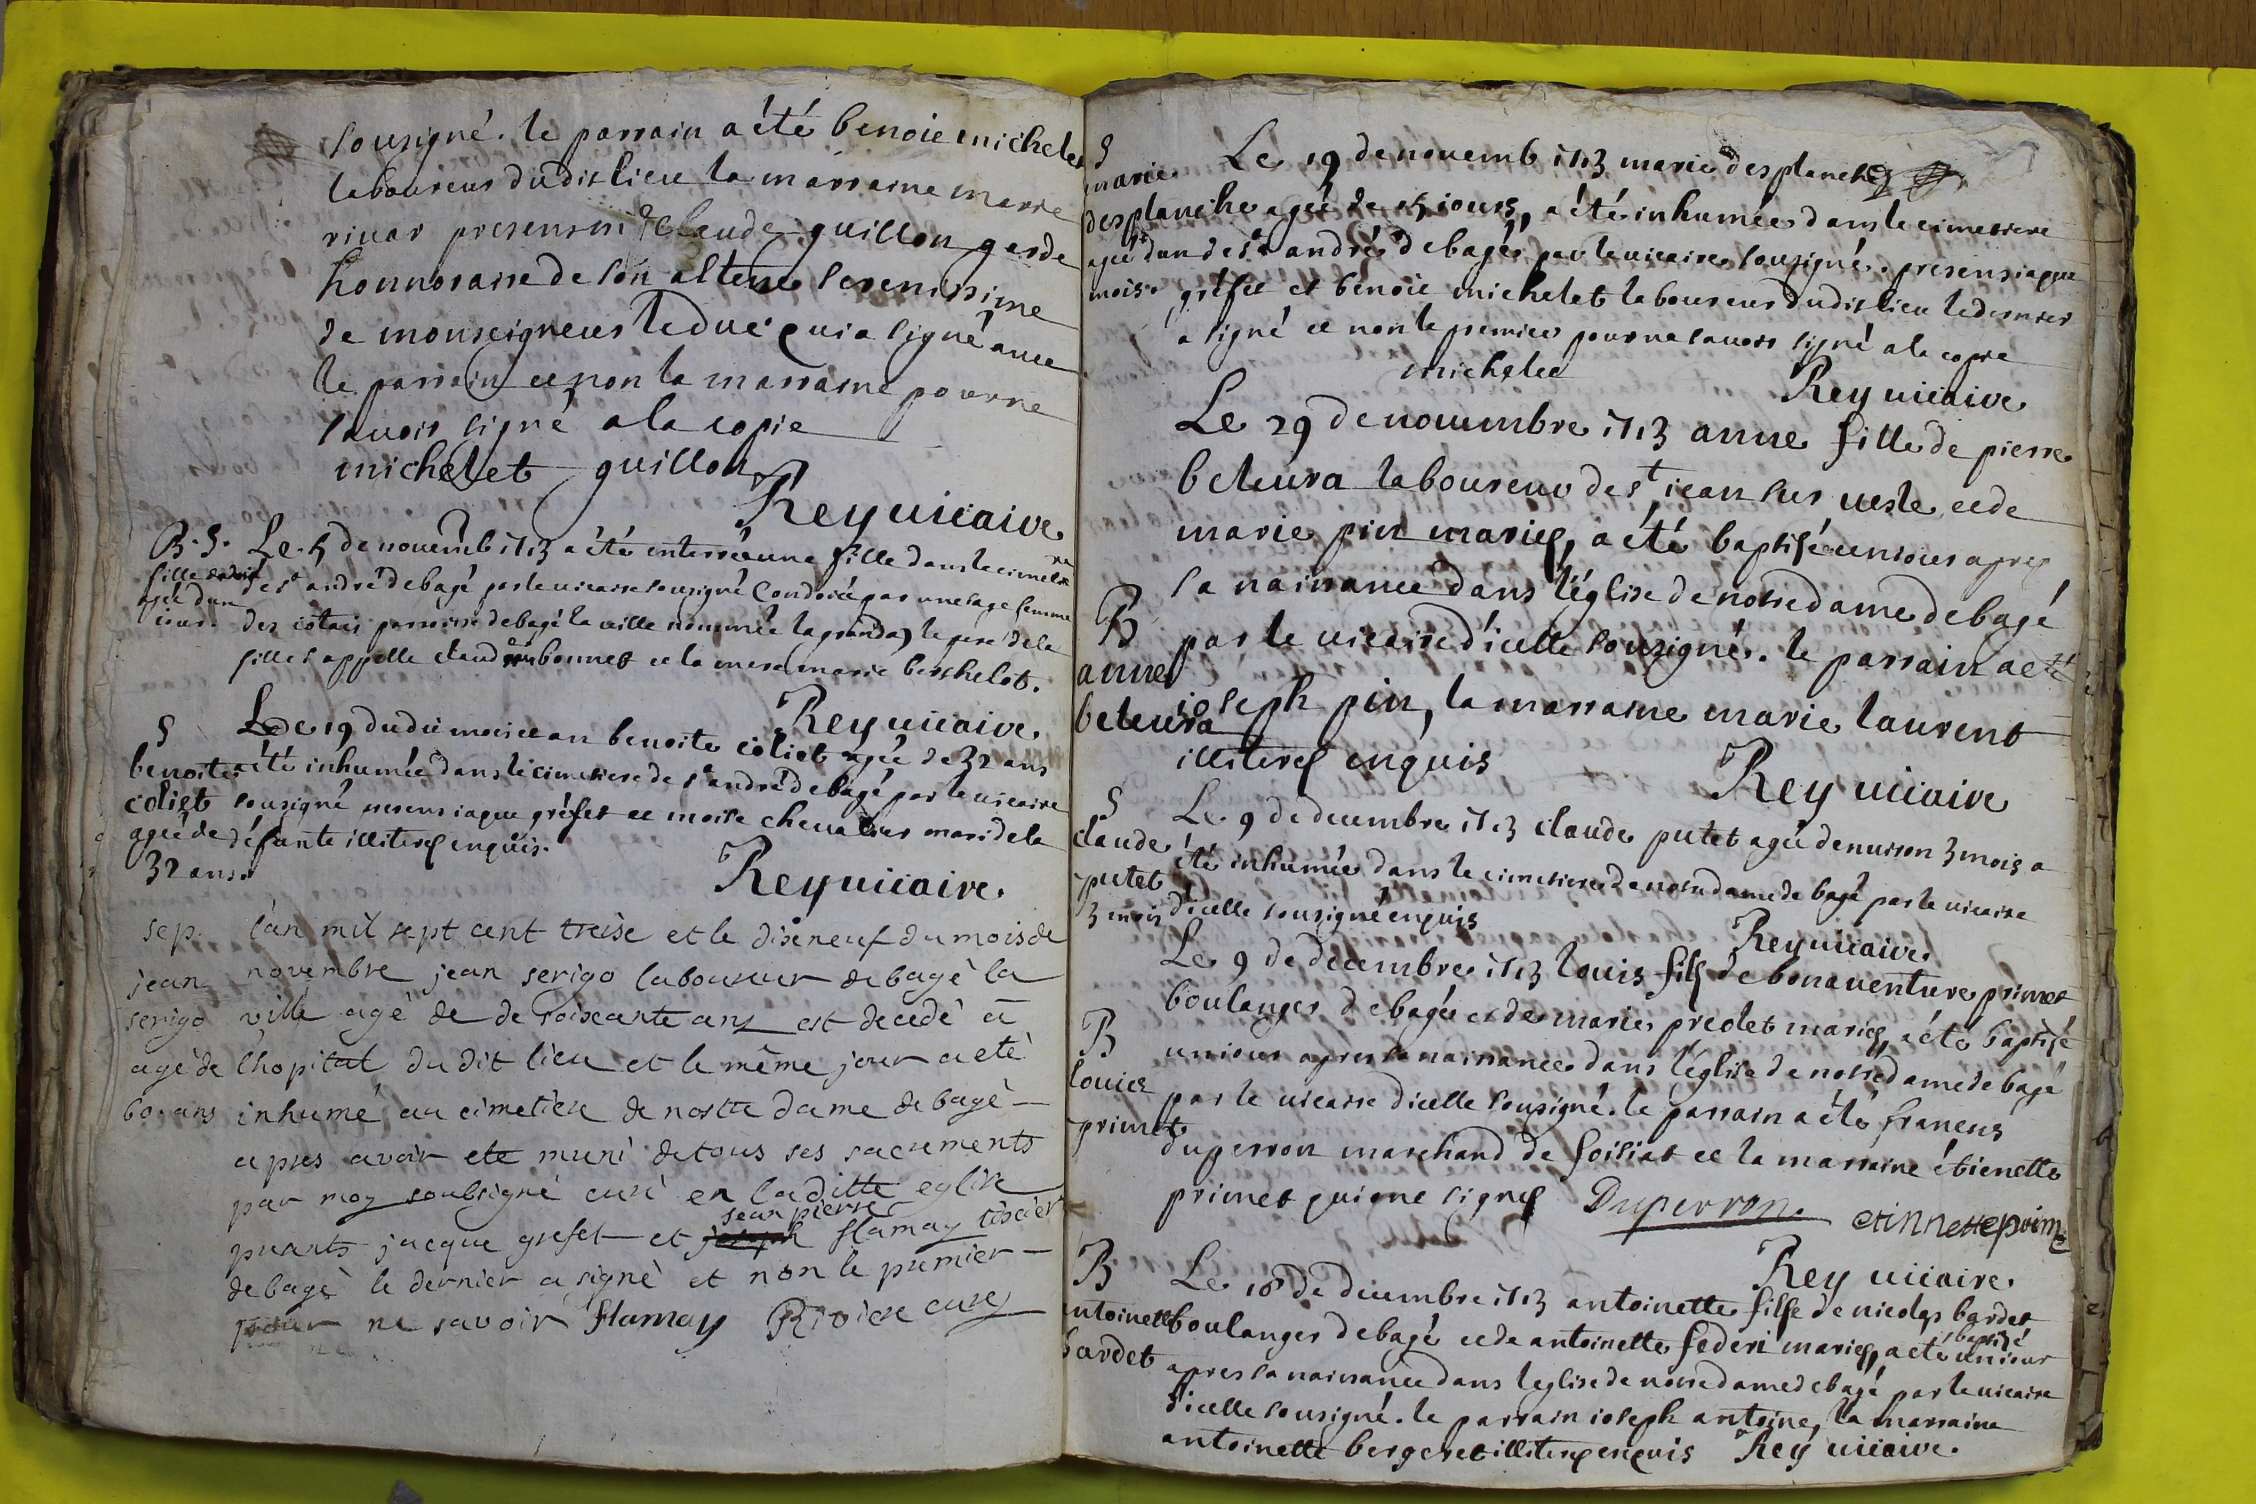 sousigné. le parrain a été benoie michelet
laboureur dudit lieu la marraine marie
rivar presens mr claude guillon garde
honnoraire de son altesse serenissime
de monseigneur le duc qui a signé avec
le parrain et non la marraine pour ne
savoir signé a la copie
michelet guillon
Rey vicaire
B. S. Le 5 de novemb 1713 a été enterrée une fille dans le cimetiere
fille
agée d'un
jour.
de st andré de bagé par le vicaire sousigné condoiée par une sage femme
des iotais parroisse de bagé la ville nommée la granda, le pere de la
fille s'appelle claude bonnet et la mere marie berthelot.
Rey vicaire
S
benoite
coliet
agée de
32 ans.
Le 19 dudit mois et an benoite coliet agée de 32 ans
a été inhumée dans le cimetiere de st andré de bagé par le vicaire
sousigné presens iaque gréfet et moise chevalier mari de la
défunte illiteres enquis.
Rey vicaire.
sep.
jean
serigo
agé de
60 ans
l'an mil sept cent treise et le dixneuf du mois de
novembre jean serigo laboureur de bagé la
ville agé de de soixante ans est decedé a
l'hopital du dit lieu et le même jour a eté
inhumé au cimetiere de nostre dame de bagé
apres avoir ete muni de tous ses sacrements
par moy soubsigné curé en la ditte eglise
jean pierre
pnants jacque grefet et flamay tissier
de bagé le dernier a signé et non le premier
pour ne savoir flamay Riviere curé
S
marie
desplanche
agée d'un
mois.
Le 19 de novemb 1713 marie desplanche
agée de 15 iours, a été inhumée dans le cimetiere
de st andré de bagé par le vicaire sousigné. presens iaque
gréfet et benoie michelet laboureur dudit lieu le dernier
a signé et non le premier pour ne savoir signé a la copie
michelet
Rey vicaire
Le 29 de novembre 1713 anne fille de pierre
beleura laboureur de st iean sur vesle et de
marie pin maries, a été baptisé un iour apres
sa naissance dans l'église de notre dame de bagé
B
anne
beleura
par le vicaire d'icelle sousigné. le parrain a eté
ioseph pin, la marraine marie laurent
illiteres enquis
Rey vicaire
S
claude
putet
3 mois
Le 9 de decembre 1713 claude putet agée d'environ 3 mois a
été inhumée dans le cimetiere de notre dame de bagé par le vicaire
d'icelle sousigné enquis
Rey vicaire.
Le 9 de decembre 1713 louis fils de bonaventure primet
boulanger de bagé et de marie preolet maries, a été baptisé
B
louis
primet
un iour apres sa naissance dans l'église de notre dame de bagé
par le vicaire d'icelle sousigné. le parrain a été francois
duperron marchand de foisiat et la marraine étienette
primet qui ont signés Duperron. etinnette prime
Rey vicaire.
B
antoinette
bardet
Le 18 de decembre 1713 antoinette fille de nicolas bardet
boulanger de bagé et de antoinette federi maries, a été baptisé un iour
apres sa naissance dans l'eglise de notre dame de bagé par le vicaire
d'icelle sousigné. le parrain ioseph antoine, la marraine
antoinette bergeret illiteres enquis Rey vicaire.